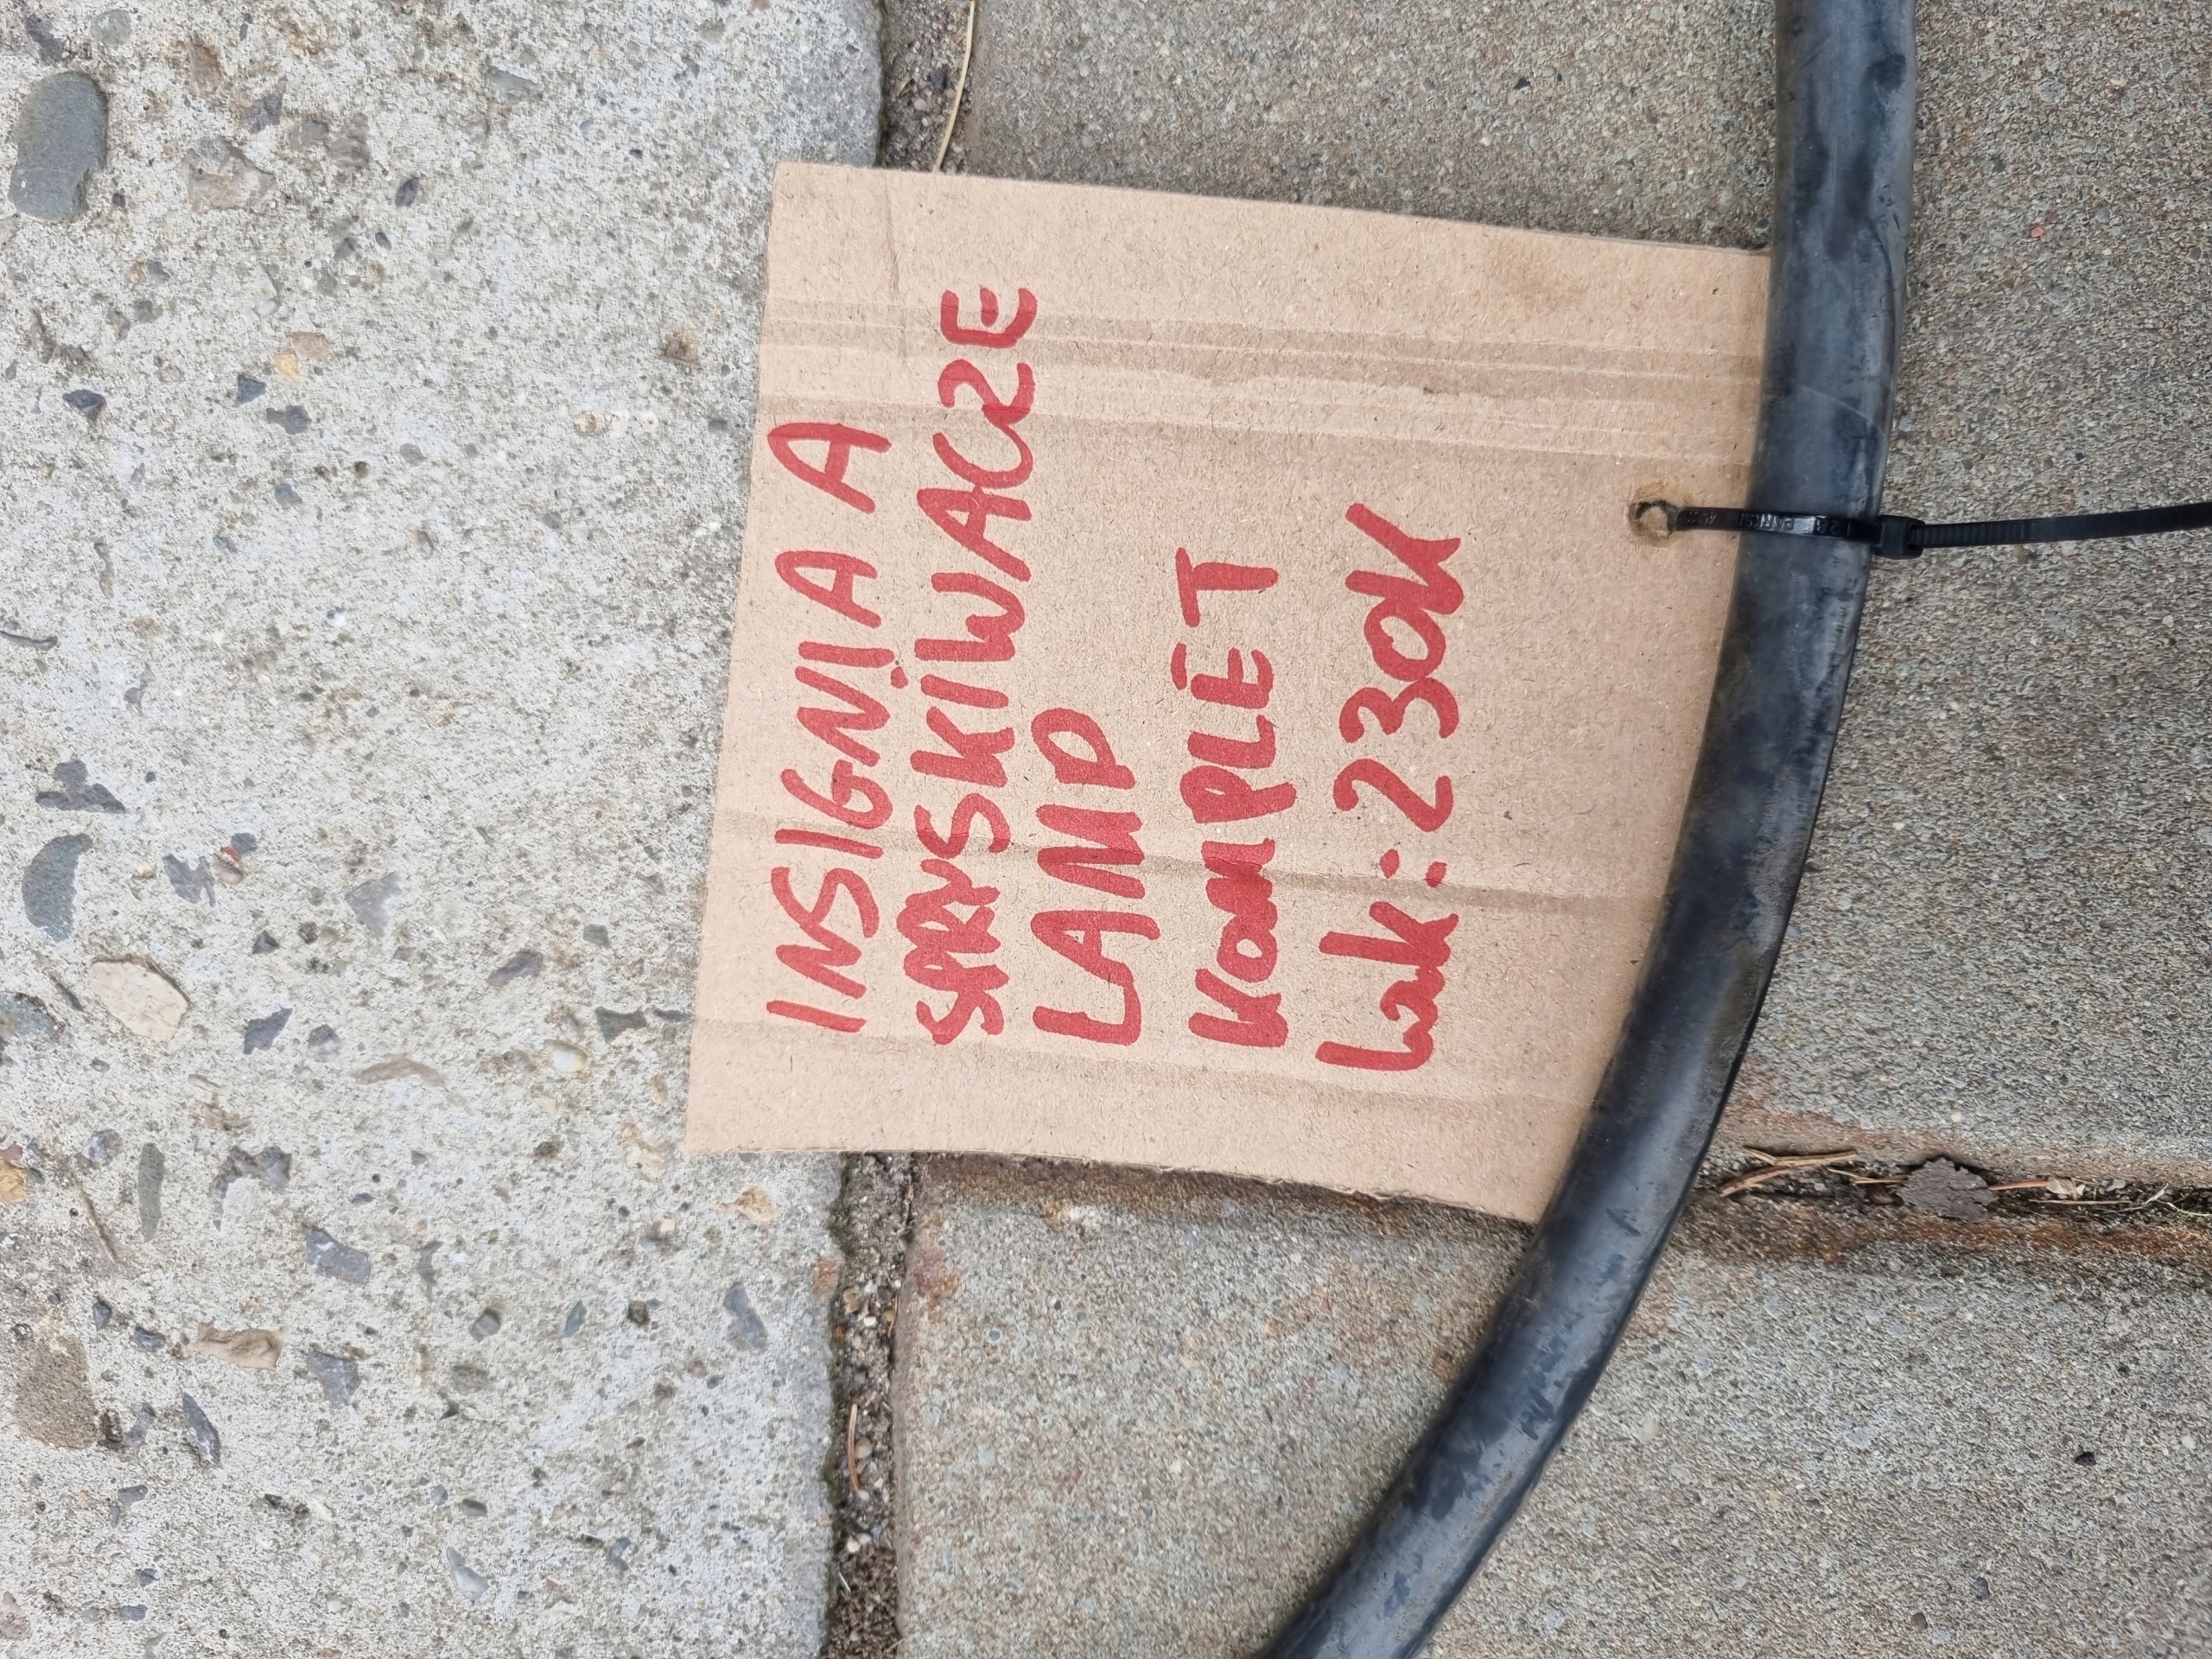 INSIGNIA A
SPRYSKIWACZE
LAMP
KOMPLET
Lak: 230K